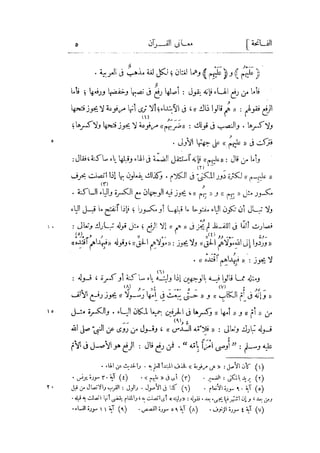 الفاتحة ] معانى القرآن ٥
﴿عَلَيْهُمْ﴾ و﴿عَلَيْهِمْ﴾ وهما لغتان؛ لكل لغة مذهب فى العربية .
فأما من رفع الهاء فإنه يقول : أصلها رفع فى نصبها وخفضها ورفعها ؛ فأما
الرفع فقولهم : « هُم قالوا ذاك » ، فى الابتداء ؛ ألا ترى أنها مرفوعة لا يجوز فتحها
ولا كسرها . والنصب فى قولك : « ضَرَبَهُم » مرفوعة لا يجوز فتحها ولا كسرها ؛
فتركت فى « عليهُم » على جهتها الأولى . ٥
وأما من قال : « عليهِم » فإنه استثقل الضمة فى الهاء وقبلها ياء ساكنة ، فقال :
« عليهِم » لكثرة دور المكنىّ فى الكلام . وكذلك يفعلون بها إذا اتصلت بحرف
مكسور مثل « بِهِم » و « بِهُم » ، يجوز فيه الوجهان مع الكسرة والياء الساكنة .
ولا تبال أن تكون الياء مفتوحا ما قبلها أو مكسورا ؛ فإذا انفتح ما قبل الياء
فصارت ألفا فى اللفظ لم يجز فى « هم » إلا الرفع ؛ مثل قوله تبارك وتعالى : ١٠
« ورُدُّوا إلى اللهِ مَوْلَاهُمُ الحَقِّ » ولا يجوز : « مَوْلَاهِمِ الحَقِّ » ، وقوله « فَبِهُدَاهُمُ اقْتَدِهْ »
لا يجوز : « فبِهُدَاهِمِ اقْتَدِهْ » .
ومثله مما قالوا فيه بالوجهين إذا وليته ياء ساكنة أو كسرة ، قوله :
« وَإِنَّهُ فِى أُمِّ الكِتَابِ » و « حَتَّى يَبْعَثَ فِى أُمِّهَا رَسُولًا » يجوز رفع الألف
من « أم » و « أمها » وكسرها فى الحرفين جميعا لمكان الياء . والكسرة مثل ١٥
قوله تبارك وتعالى : « فَلِأُمِّهِ السُّدُسُ » ، وقول من روى عن النبىّ صلى الله
عليه وسلم : " أُوصِى امرَأً بِأُمِّهِ " . فمن رفع قال : الرفع هو الأصل فى الأم
(٤) آية ٣٠ سورة يونس .
(٥) آية ٩٠ سورة الأنعام .
(٧) آية ٤ سورة الزخرف . (٨) آية ٥٩ سورة القصص . (٩) آية ١١ سورة النساء .